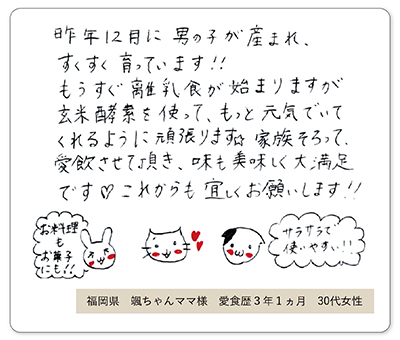 昨年12月に男の子が産まれ、
すくすく育っています!!
もうすぐ離乳食が始まりますが
玄米酵素を使って、もっと元気でいて
くれるように頑張ります☆ 家族そろって、
愛飲させて頂き、味も美味しく大満足
です♡ これからも宜しくお願いします!!
お料理
も
お菓子
にも!!
サラサラで
使いやすい!!
福岡県 颯ちゃんママ様 愛食歴3年1ヵ月 30代女性